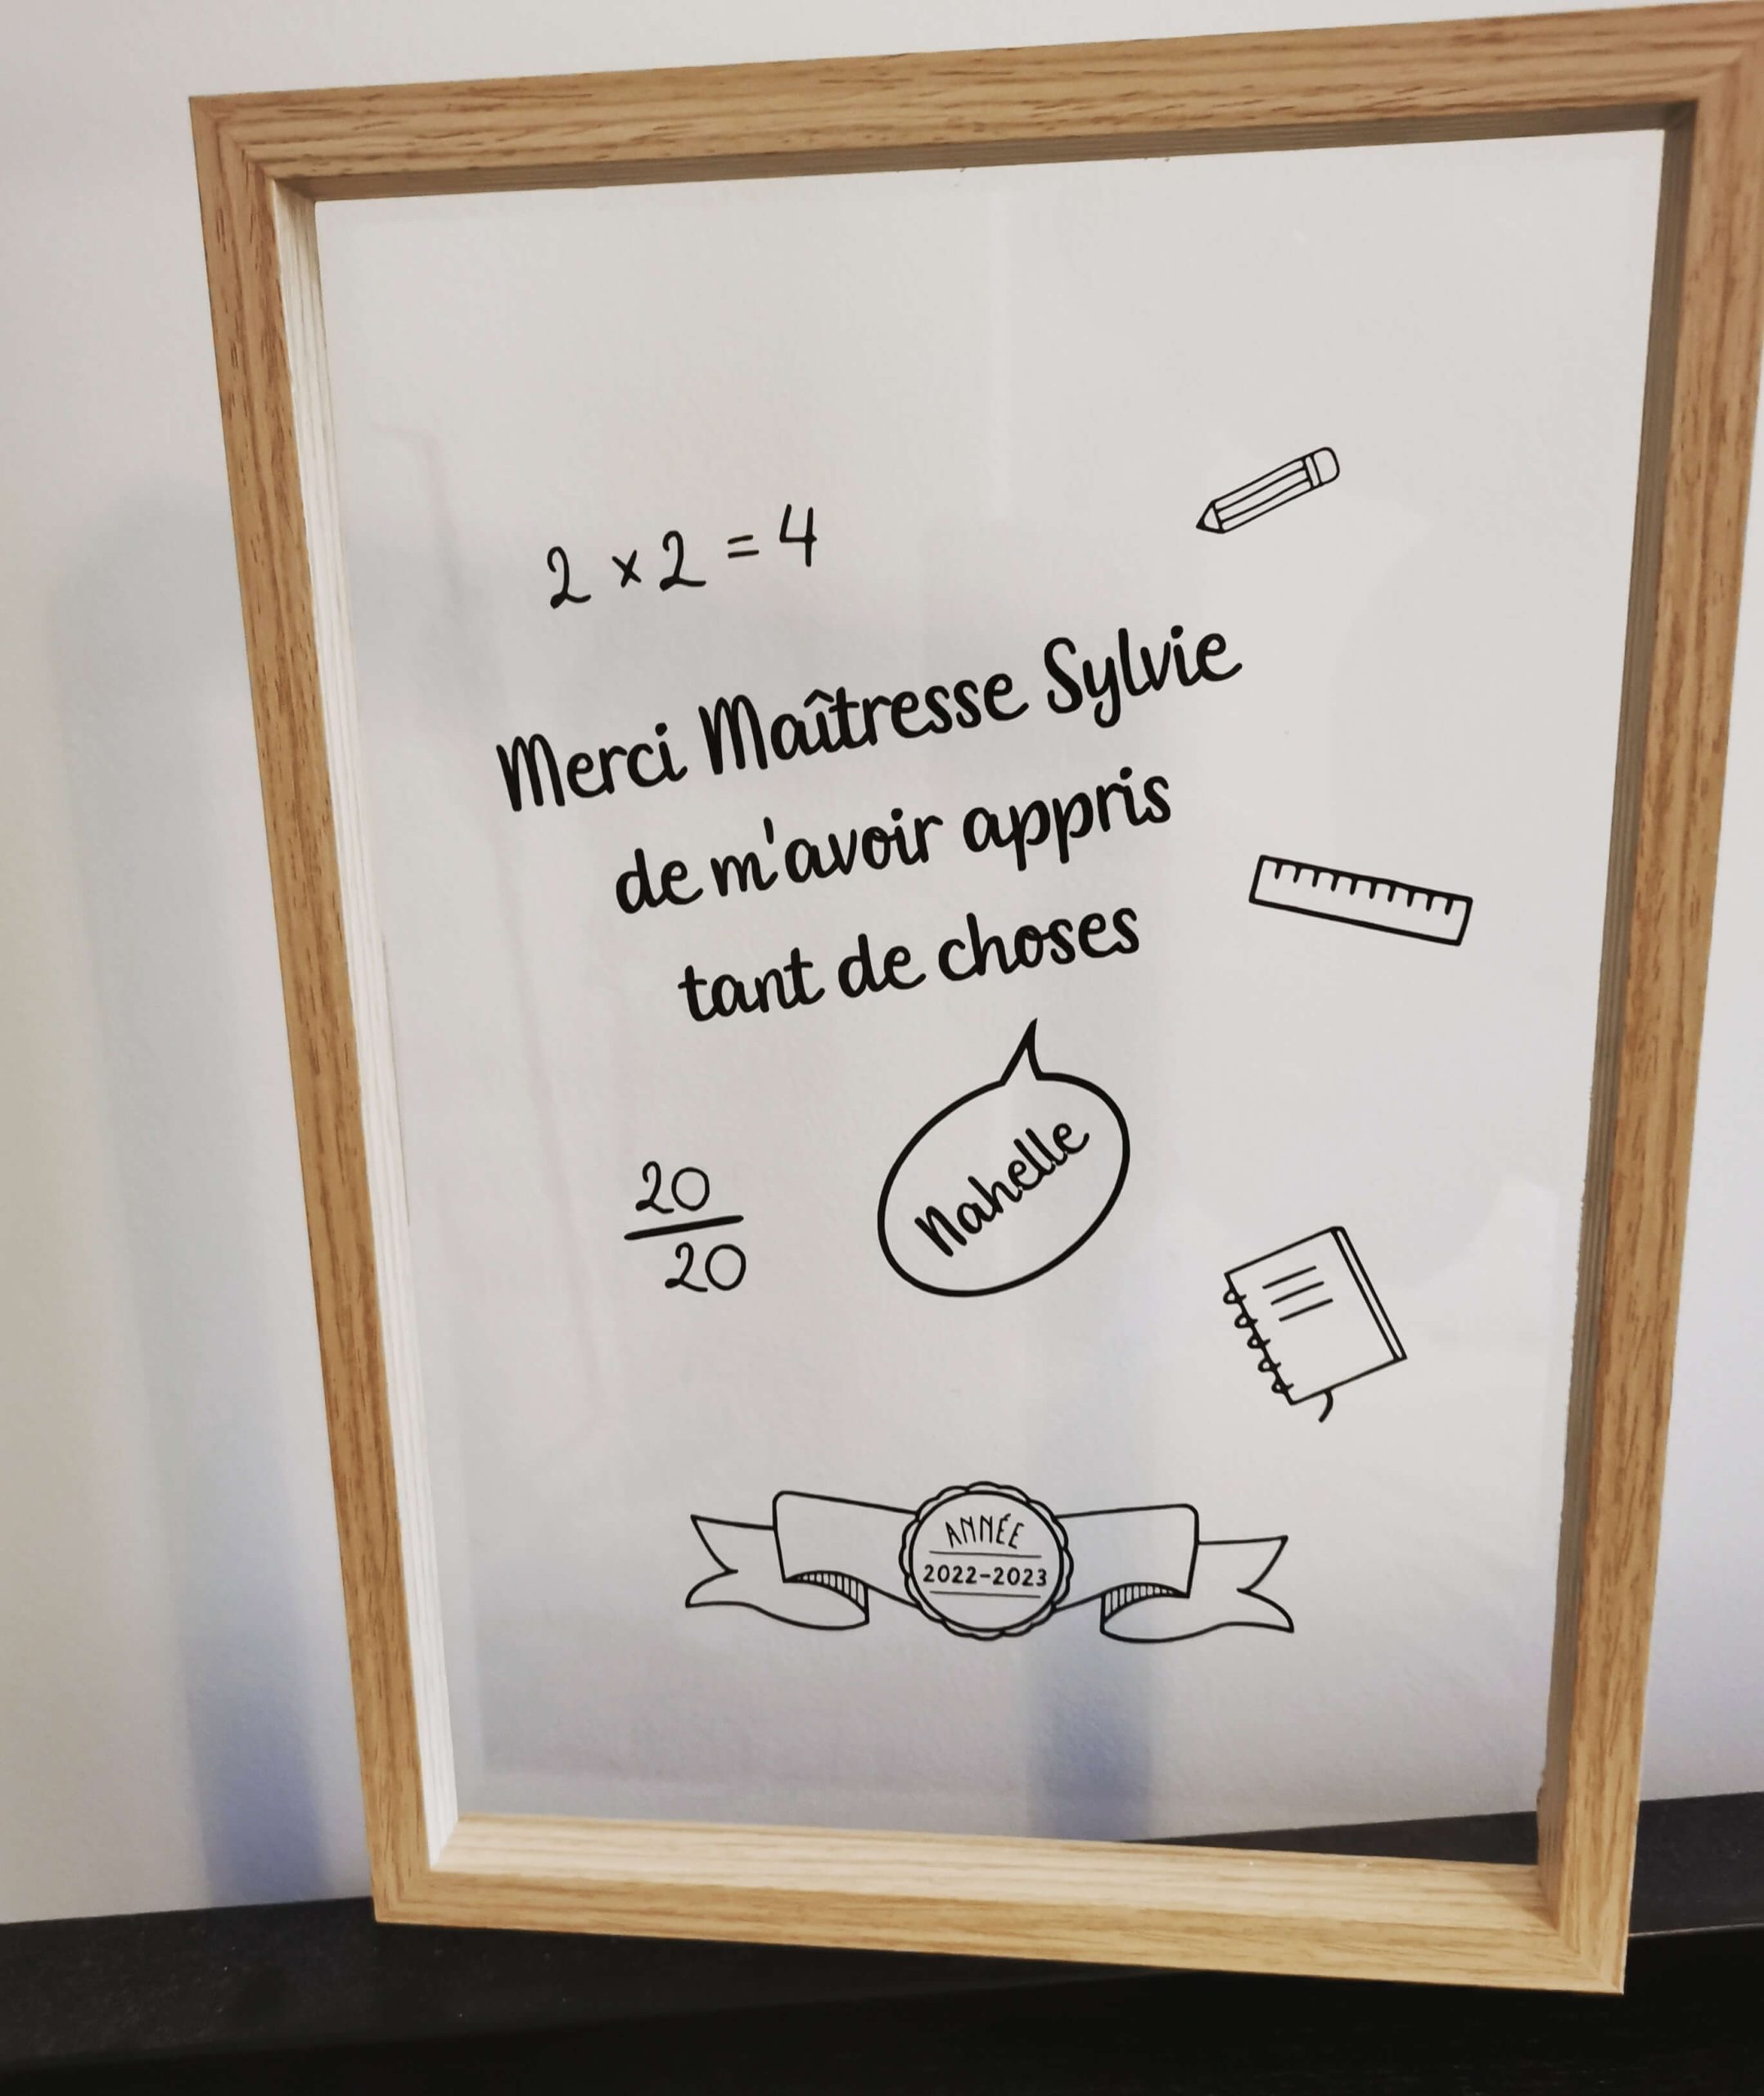 2 x 2 = 4
Merci Maîtresse Sylvie
de m'avoir appris
tant de choses
Nahelle
20
20
ANNÉE
2022-2023